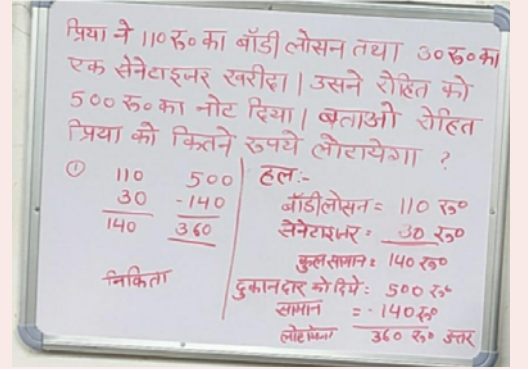 प्रिया ने 110 रु० का बॉडी लोसन तथा 30 रु० का
एक सेनेटाइजर खरीदा। उसने रोहित को
500 रु० का नोट दिया। बताओ रोहित
प्रिया को कितने रुपये लौटायेगा ?
①
110
30
140
500
-140
360
निकिता
हल:-
बॉडीलोसन = 110 रु०
सेनेटाइजर = 30 रु०
कुल सामान = 140 रु०
दुकानदार को दिये = 500 रु०
सामान = - 140 रु०
360 रु० उत्तर